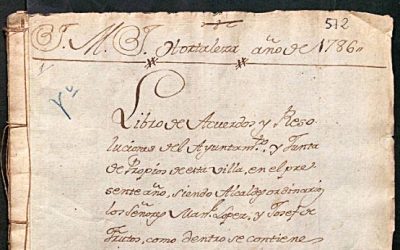 512
J. M. J. Hortaleza año de 1786
Libro de Acuerdos y Reso
luciones del Ayuntam.to y Junta
de Propios de esta villa, en el pre
sente año, siendo Alcaldes ordinarios
los Señores Man.l Lopez, y Josef de
Frutos, como dentro se contiene